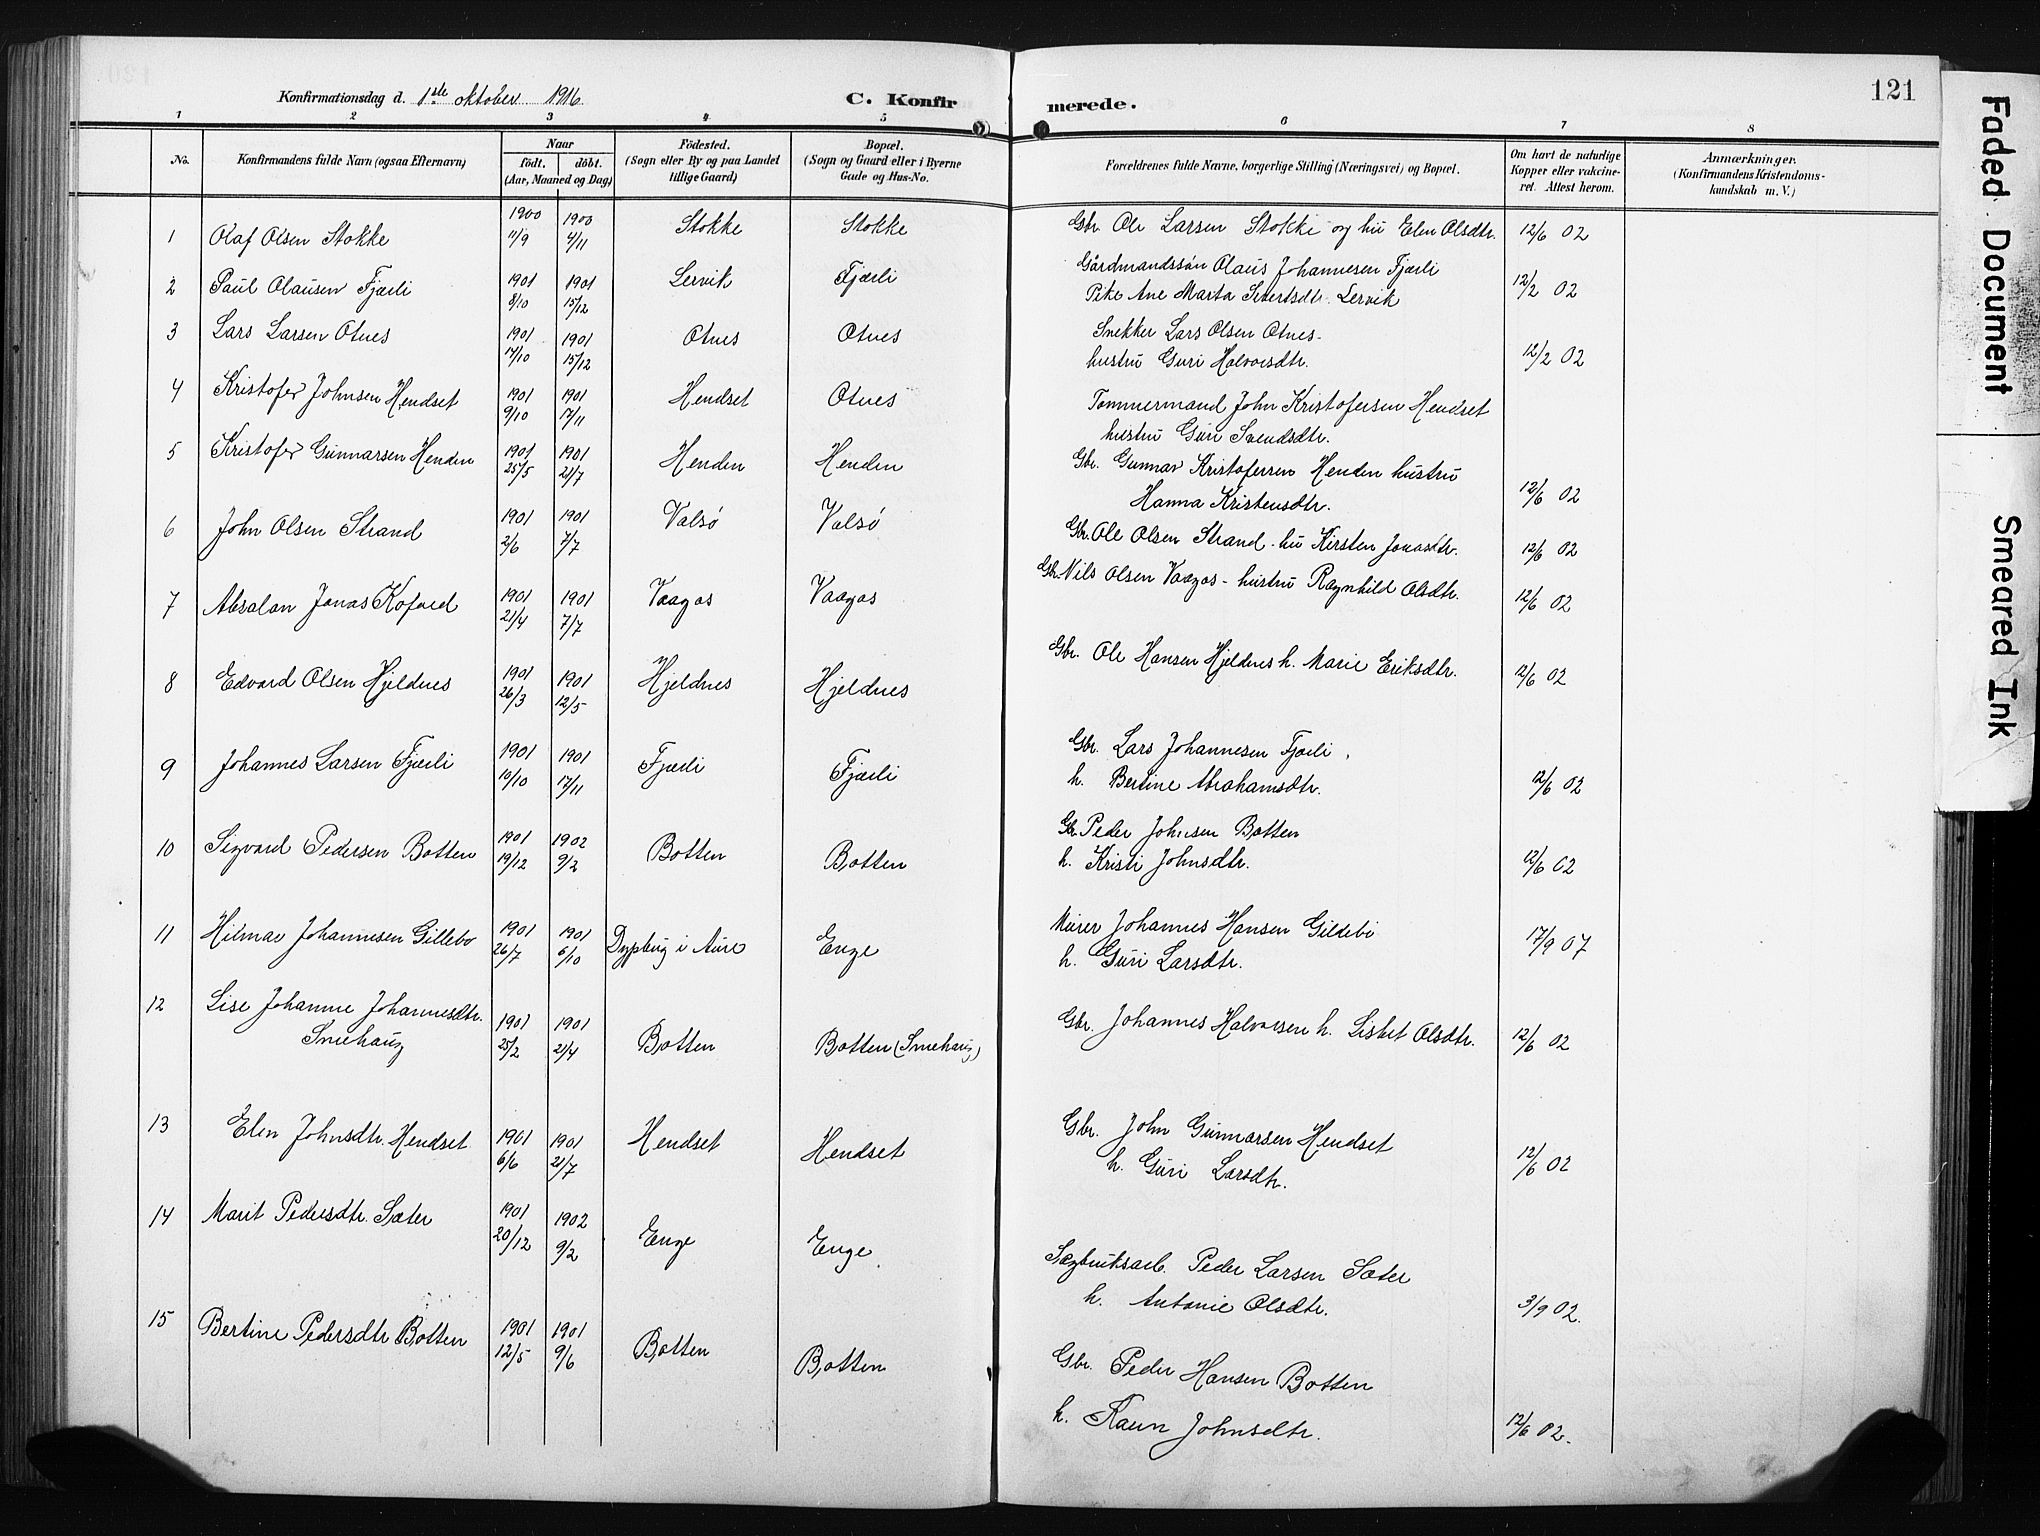 Konfirmationsdag d. 1ste oktober 1916.
C. Konfirmerede.
121
1 2 3 4 5 6 7 8
No.
Konfirmandens fulde Navn (ogsaa Efternavn)
Naar
født. døbt.
(Aar, Maaned og Dag)
Fødested.
(Sogn eller By og paa Landet
tillige Gaard)
Bopæl.
(Sogn og Gaard eller i Byerne
Gade og Hus-No.
Forældrenes fulde Navne, borgerlige Stilling (Næringsvei) og Bopæl.
Om havt de naturlige
Kopper eller vakcine-
ret. Attest herom.
Anmærkninger.
(Konfirmandens Kristendoms-
kundskab m. V.)
1 Olaf Olsen Stokke 1900 11/9 1900 4/11 Stokke Stokke Gbr. Ole Larsen Stokke og hu Elen Olsdtr. 12/6 02
2 Paul Olausen Fjærli 1901 8/10 1901 15/12 Lervik Fjærli Gårdmandssøn Olaus Johannesen Fjærli
Pike Ane Marta Sivertsdtr. Lervik 12/2 02
3 Lars Larsen Otnes 1901 17/10 1901 15/12 Otnes Otnes Snekker Lars Olsen Otnes -
hustru Guri Halvorsdtr. 12/2 02
4 Kristofer Johnsen Hendset 1901 9/10 1901 17/11 Hendset Otnes Tømmermand John Kristofersen Hendset
hustru Guri Svendsdtr.
5 Kristofer Gunnarsen Henden 1901 25/5 1901 21/7 Henden Henden Gbr. Gunnar Kristofersen Henden hustru
Hanna Kristensdtr. 12/6 02
6 John Olsen Strand 1901 2/6 1901 7/7 Valsø Valsø Gbr. Ole Olsen Strand - hu Kirsten Jonasdtr. 12/6 02
7 Absalon Jonas Kofoed 1901 21/4 1901 7/7 Vaagos Vaagos Gbr. Nils Olsen Vaagos - hustru Ragnhild Olsdtr. 12/6 02
8 Edvard Olsen Hjeldnes 1901 26/3 1901 12/5 Hjeldnes Hjeldnes Gbr. Ole Hansen Hjeldnes h. Marie Eriksdtr. 12/6 02
9 Johannes Larsen Fjærli 1901 10/10 1901 17/11 Fjærli Fjærli Gbr. Lars Johannesen Fjærli
h. Bertine Abrahamsdtr. 12/6 02
10 Sigvard Pedersen Botten 1901 19/12 1902 9/2 Botten Botten Gb. Peder Johnsen Botten
h. Kristi Johnsdtr. 12/6 02
11 Hilmar Johannesen Gillebo 1901 26/7 1901 6/10 i Aure Enge Murer Johannes Hansen Gildebo
h. Guri Larsdtr. 17/9 07
12 Lise Johanne Johannesdtr.
Smehaug 1901 25/2 1901 21/4 Botten Botten (Smehaug) Gbr. Johannes Halvorsen h. Lisbet Olsdtr. 12/6 02
13 Elen Johnsdtr. Hendset 1901 6/6 1901 21/7 Hendset Hendset Gbr. John Gunnarsen Hendset
h. Guri Larsdtr. 12/6 02
14 Marit Pedersdtr. Sæter 1901 20/12 1902 9/2 Enge Enge Sagbruksarb. Peder Larsen Sæter
h. Antonie Olsdtr. 3/9 02.
15 Bertine Pedersdtr Botten 1901 12/5 1901 9/6 Botten Botten Gbr. Peder Hansen Botten
h. Karen Johnsdtr. 12/6 02.
Faded Document
Smeared Ink